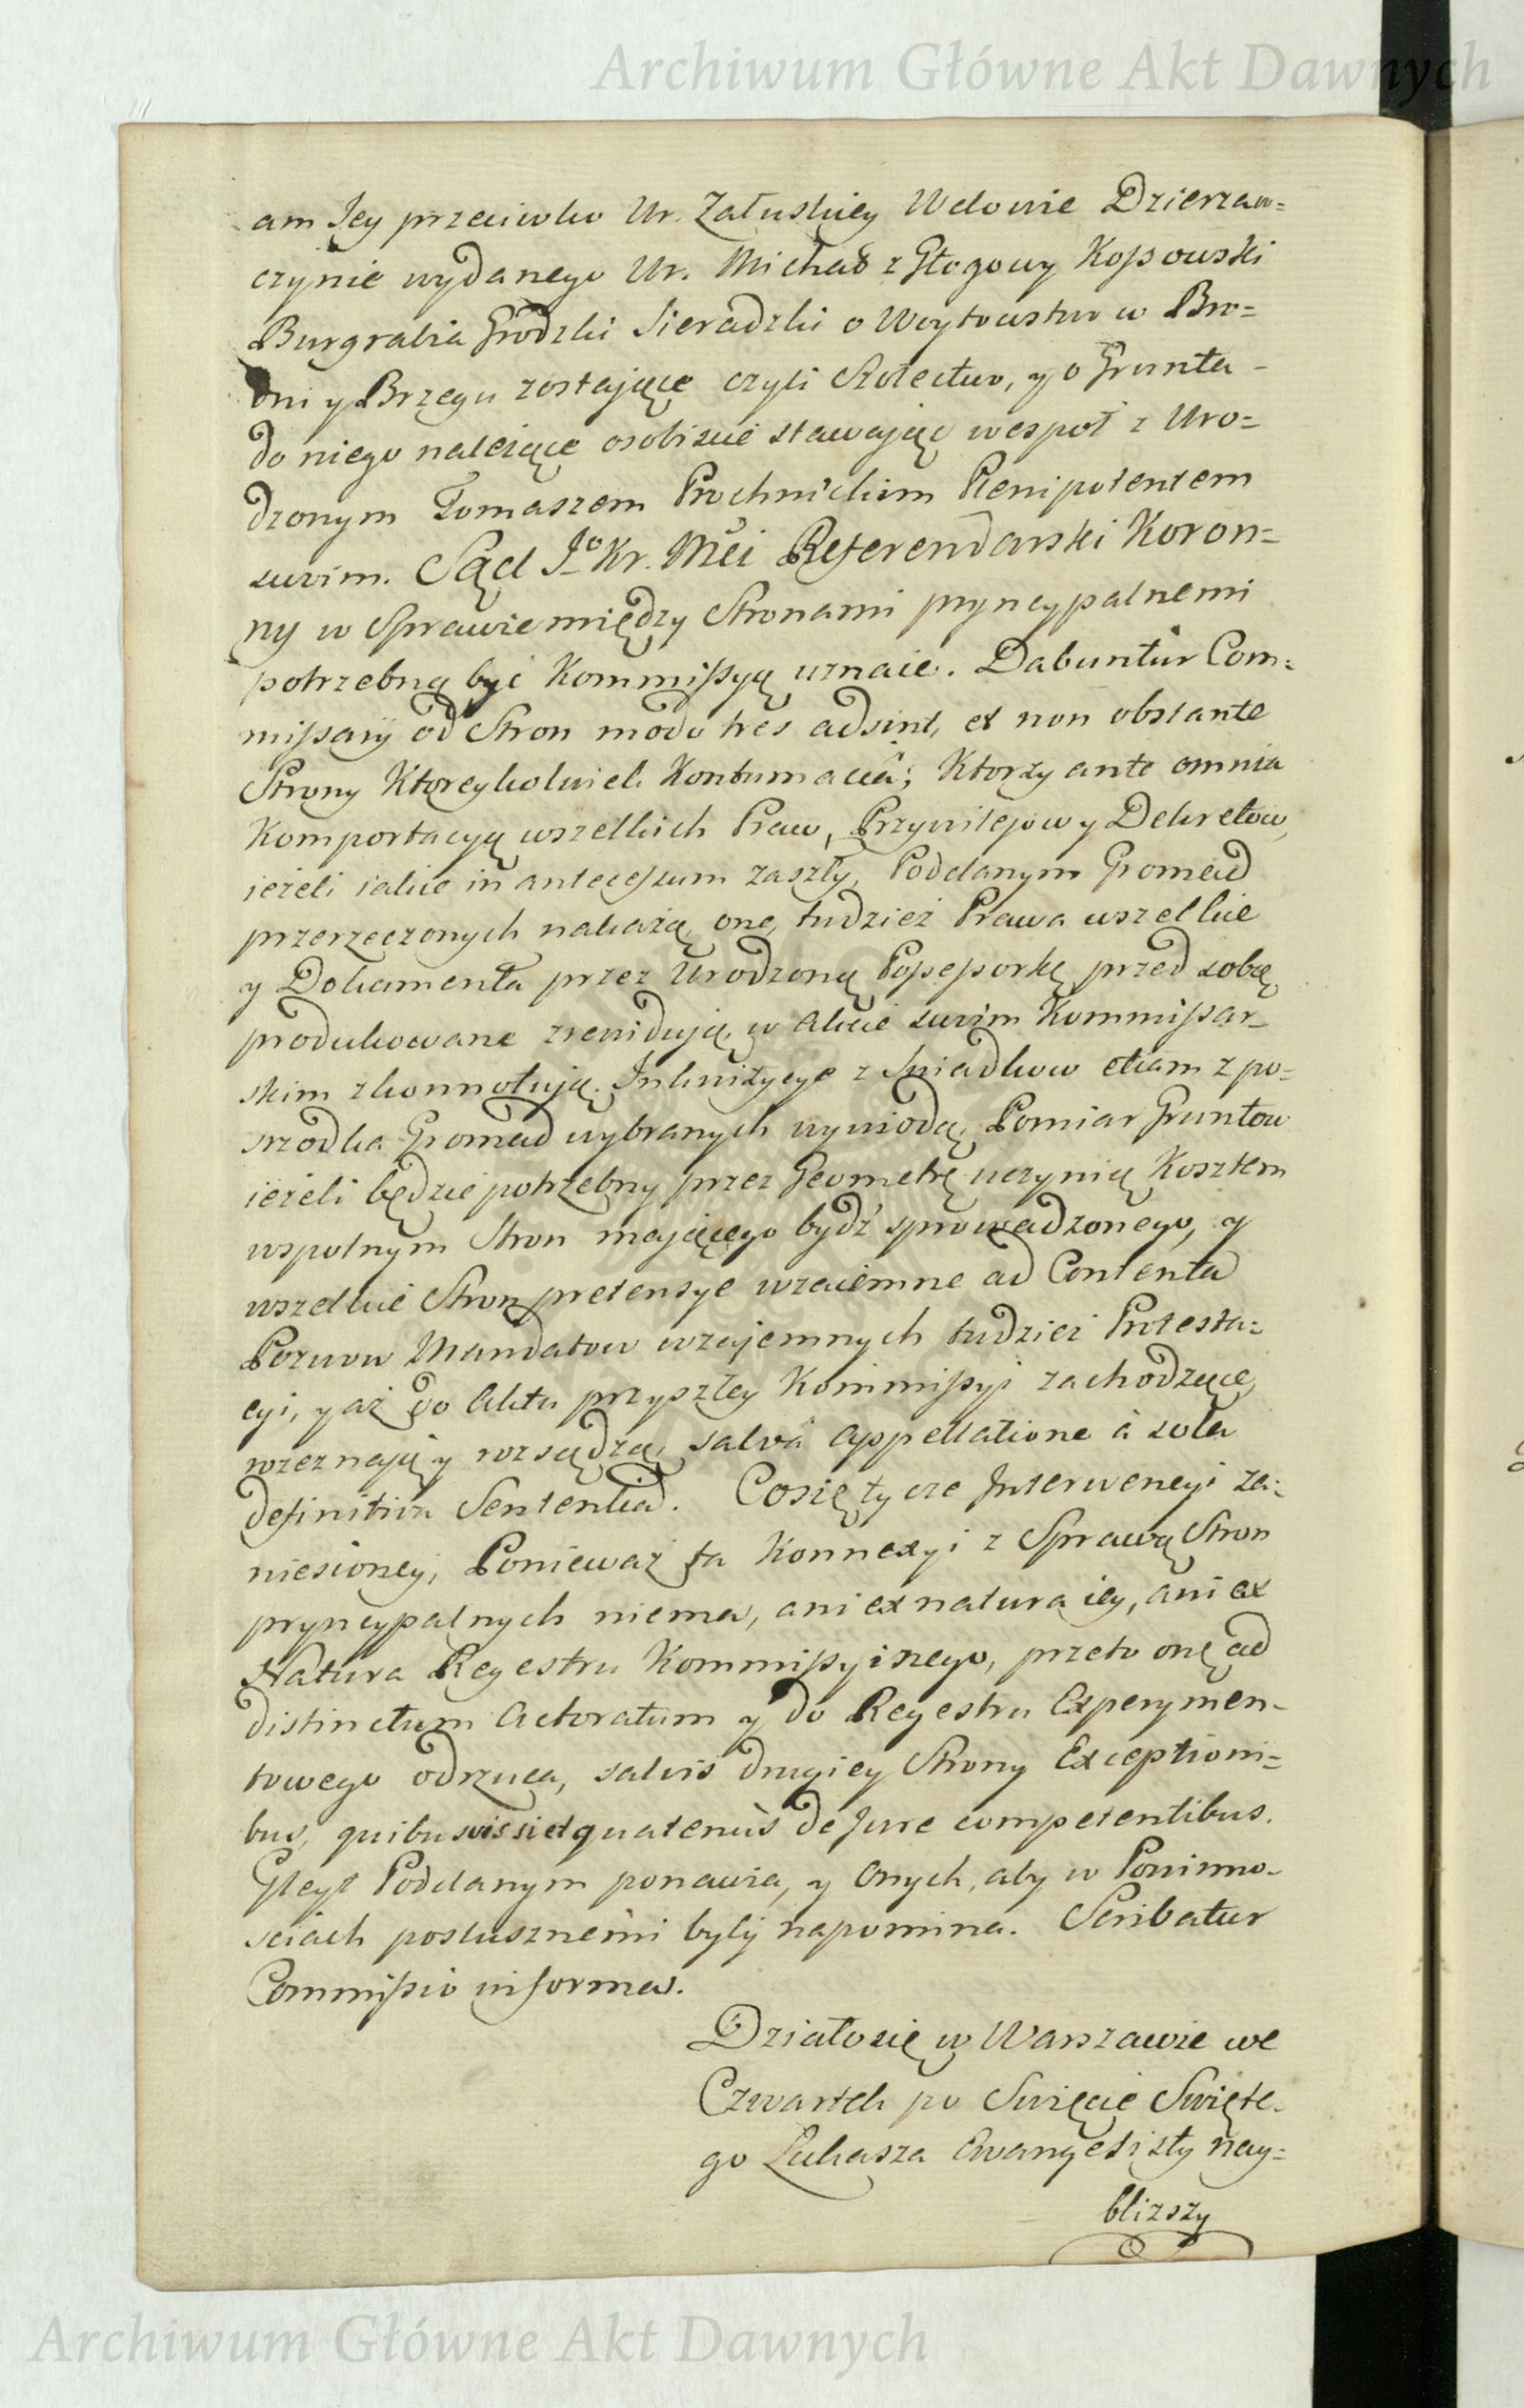 Archiwum Główne Akt Dawnych
am Jey przeciwko Ur. Załuskiey Wdowie Dzierzaw=
czynie wydanego Ur. Michał z Głogowy Kossowski
Burgrabia Grodzki Sieradzki o Woytowstwo w Bro=
dni y Brzegu zostające czyli Sołectwo, y o Grunta
do niego należące osobiscie stawając wespoł z Uro=
dzonym Tomaszem Prochnickim Plenipotentem
swoim. Sąd Jo Kr. Mci Referendarski Koron=
ny w Sprawie między Stronami pryncypalnemi
potrzebną być Kommissyą uznaie. Dabuntur Com=
missarij od Stron modo tres adsint, et non obstante
Strony Ktoreykolwiek Kontumaciâ; Ktorzy ante omnia
Komportacyą wszelkich Praw, Przywilejow y Dekretow,
ieżeli iakie in antecessum zaszły, Poddanym Gromad
przerzeczonych nakażą, one, tudzież Prawa wszelkie
y Dokumenta przez Urodzoną Possessorkę przed sobą
produkowane zrewidują, w Akcie swoim Kommissar=
skim zkonnotują. Inkwizycye z Swiadkow etiam z po=
srzodka Gromad wybranych wywiodą, Pomiar Gruntow
ieżeli będzie potrzebny przez Geometrę uczynią Kosztem
wspolnym Stron mającego bydź sprowadzonego, y
wszelkie Stron pretensye wzaiemne ad Contenta
Pozwow Mandatow wzajemnych tudzież Protesta=
cyi, y aż do Aktu przyszłey Kommissyi zachodzące,
rozeznają y rozsądzą, salvâ Appellatione à sola
definitiva Sententia. Co się tycze Interwencyi za=
niesioney, Ponieważ ta Konnexyi z Sprawą Stron
pryncypalnych niema, ani ex natura iey, ani ex
Natura Regestru Kommissyinego, przeto onę ad
distinctum Actoratum y do Regestru Experymen=
towego odrzuca, salvis drugiey Strony Exceptioni=
bus, quibusvis siet quatenùs de Jure competentibus.
Gleyt Poddanym ponawia, y Onych, aby w Powinno=
sciach posłusznemi byly napomina. Scribatur
Commissio in forma.
Działo się w Warszawie we
Czwartek po Swięcie Swięte=
go Łukasza Ewangelisty nay=
blizszy
Archiwum Główne Akt Dawnych